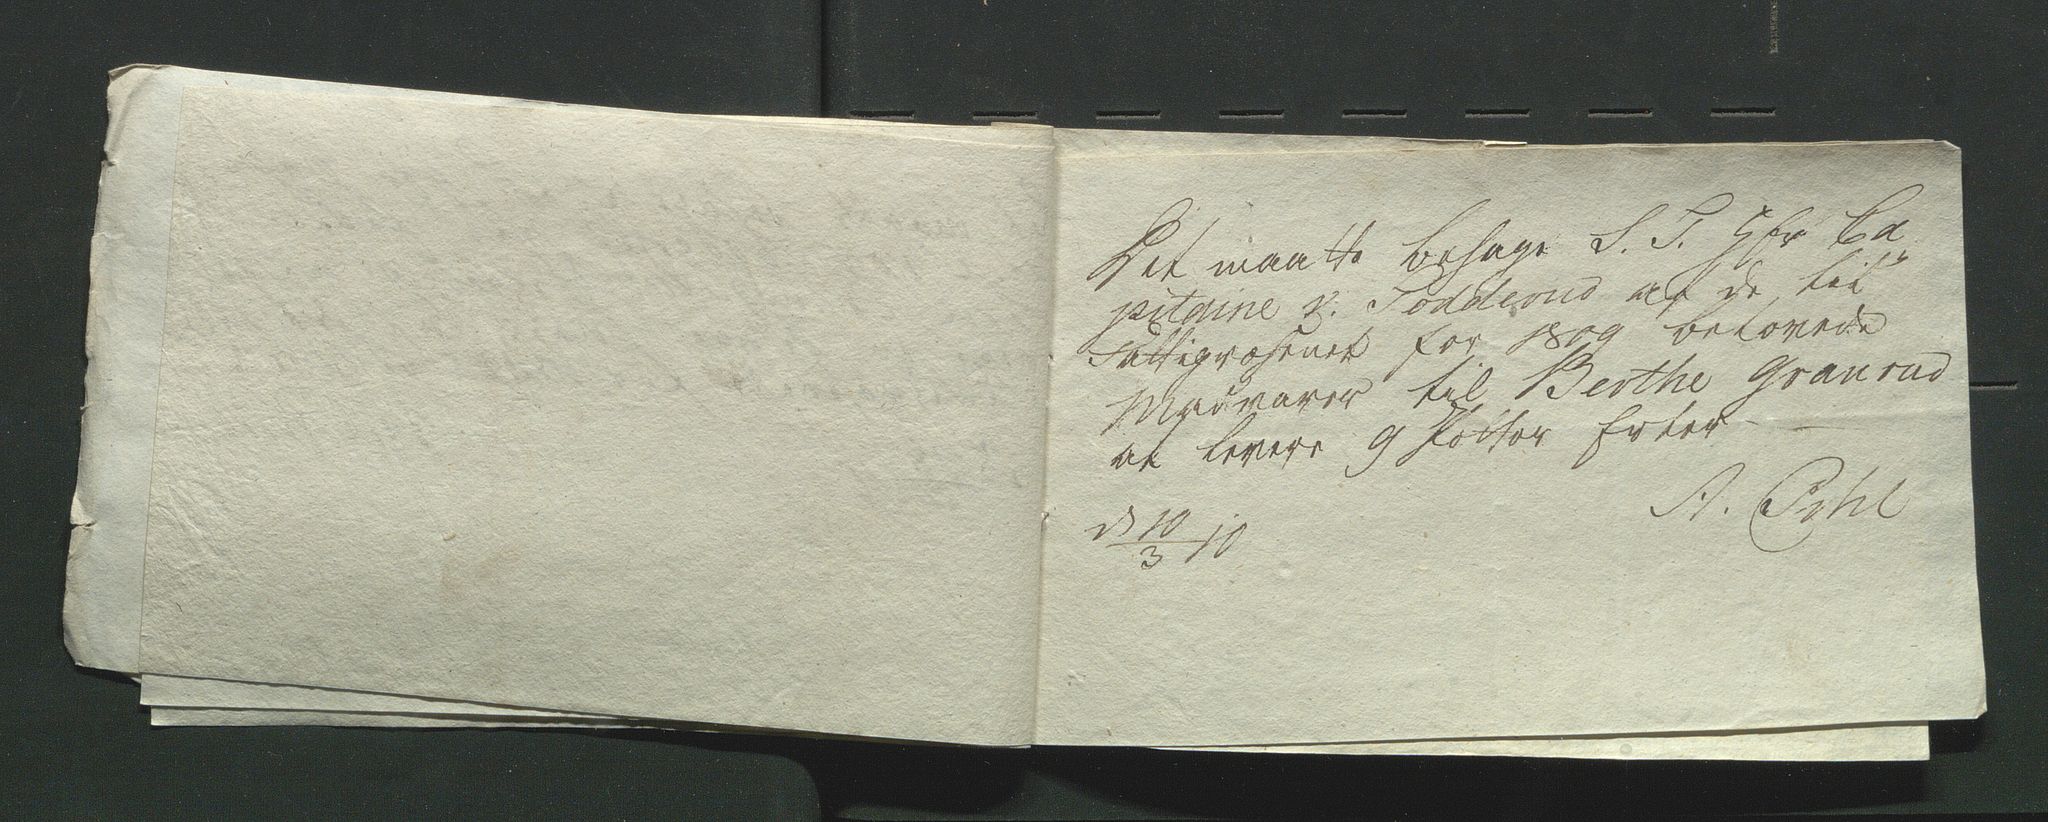 Det maatte behage S. T. Hr Ca
pitaine v: Todderud at de til
Fattigvæsenet for 1809 belovede
Madvarer til Berthe Granrud
at levere 9 Potter Erter
A. Pihl
d 10/3 10